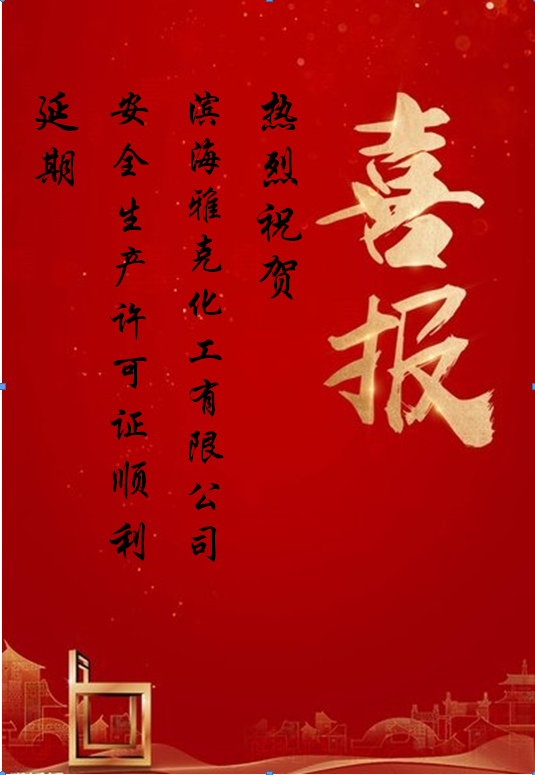 喜报
热烈祝贺
滨海雅克化工有限公司
安全生产许可证顺利
延期